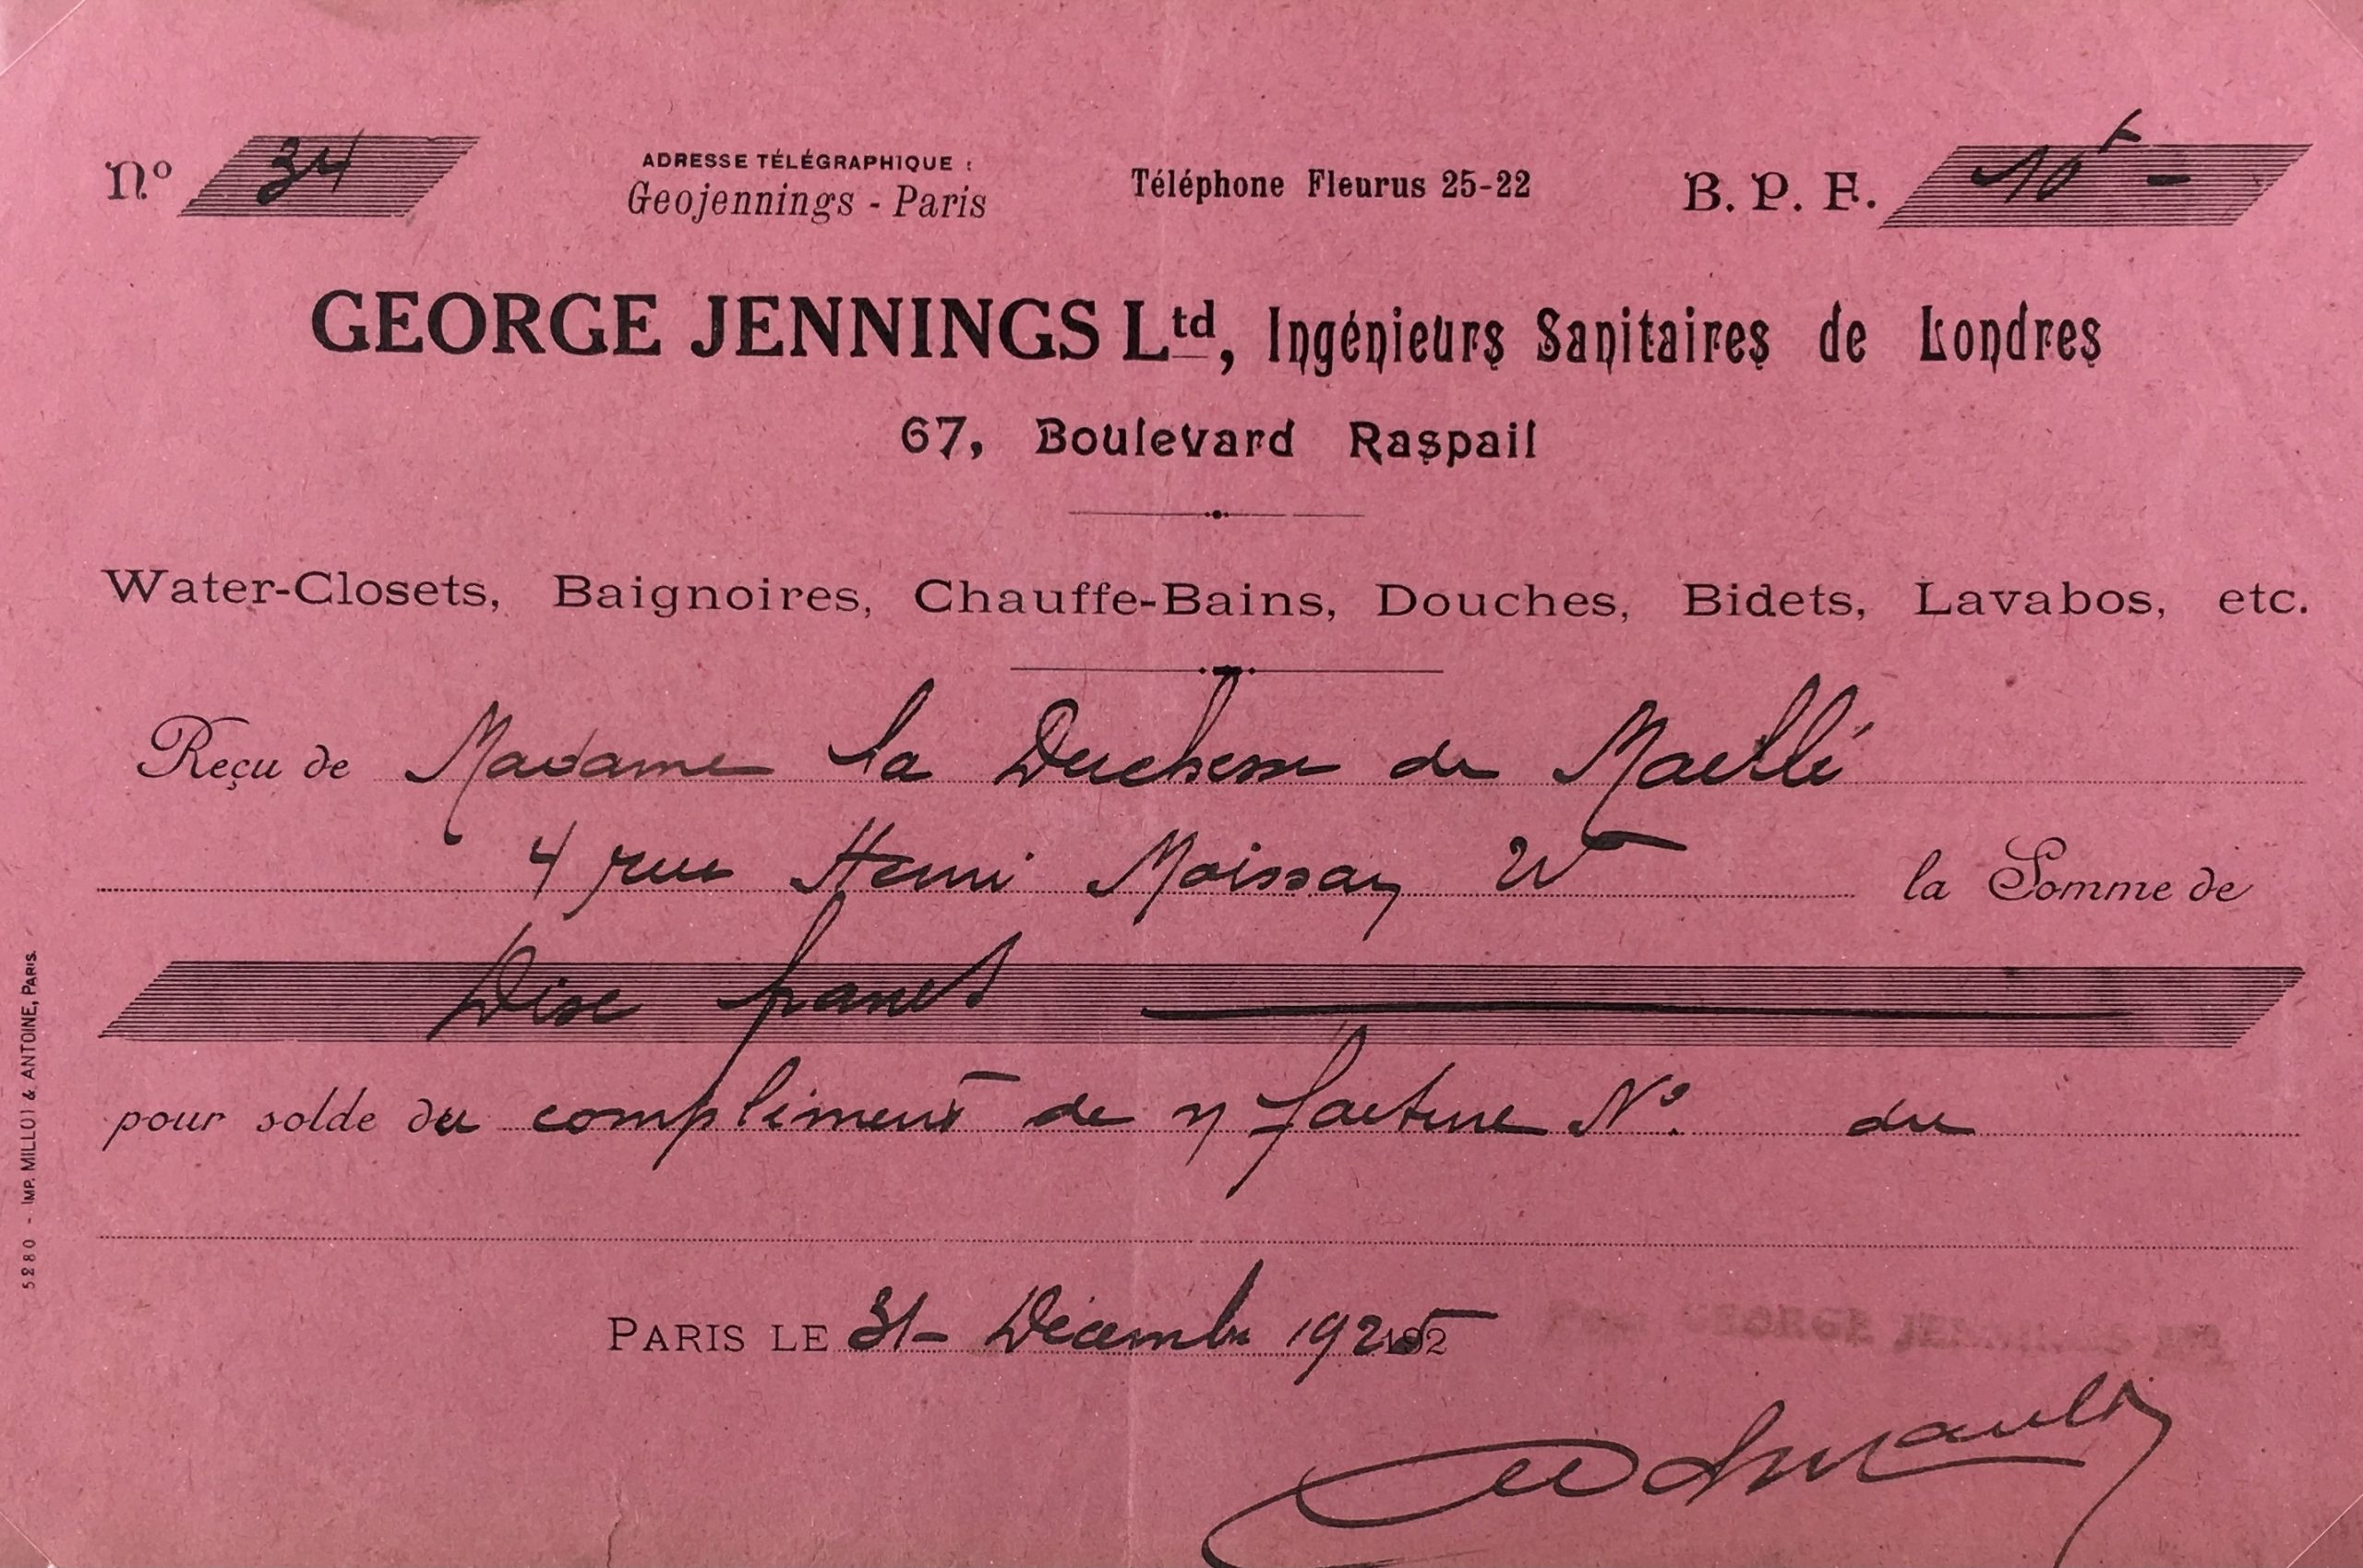 Nº 34
ADRESSE TÉLÉGRAPHIQUE :
Geojennings - Paris
Téléphone Fleurus 25-22
B. P. F. 10 f -
GEORGE JENNINGS Ltd, Ingénieurs Sanitaires de Londres
67, Boulevard Raspail
Water-Closets, Baignoires, Chauffe-Bains, Douches, Bidets, Lavabos, etc.
Reçu de Madame la Duchesse de Maillé
4 rue Henri Moissan la Somme de
Dix francs
pour solde du complément de n/ facture Nº. du
PARIS LE 31 - Décembre 1925 192
GEORGE JENNINGS Ltd
5280 - IMP. MILLOT & ANTOINE, PARIS.